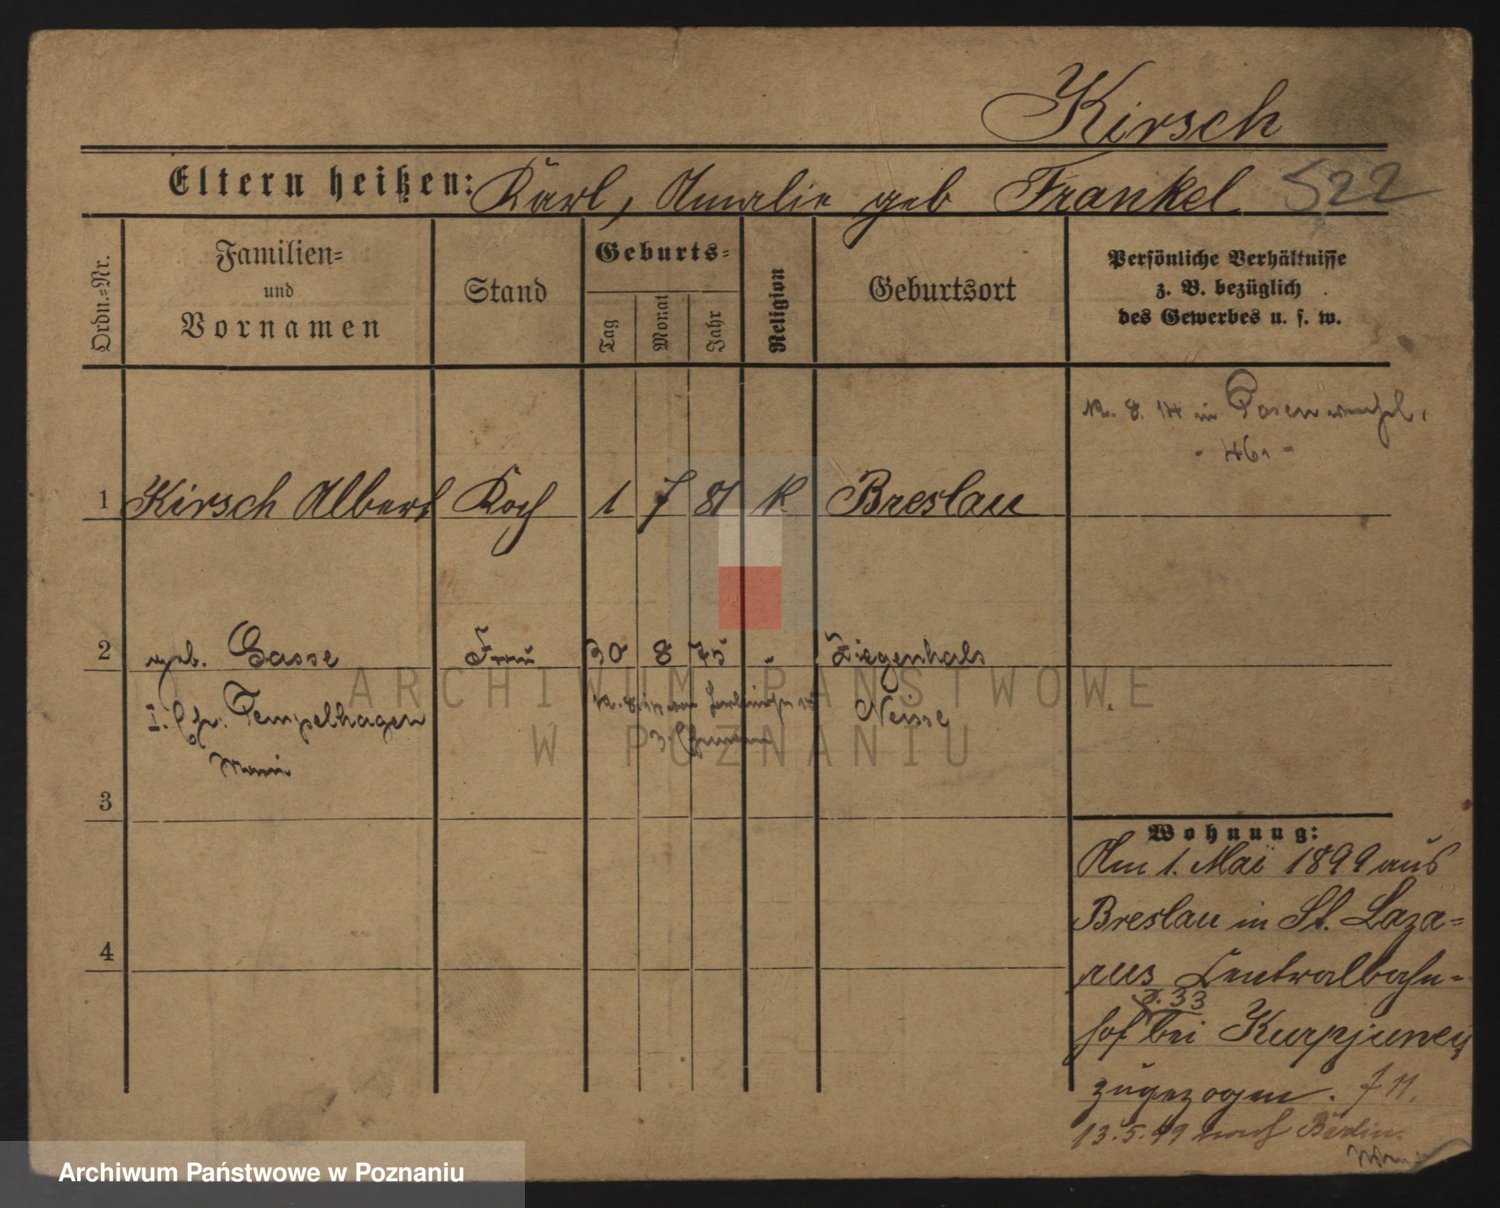 Kirsch
Eltern heißen: Karl, Amalie geb Frankel 522
Ordn.-Nr.
Familien-
und
Vornamen
Stand
Geburts-
Tag
Monat
Jahr
Religion
Geburtsort
Persönliche Verhältnisse
z. B. bezüglich
des Gewerbes u. s. w.
8. 14 in Posen
46
1 Kirsch Albert Koch 1 7 81 K Breslau
2 geb. Gasse Frau 30 8 75 Ziegenhals
Tempelhagen Neisse
3
4
Wohnung:
Am 1. Mai 1899 aus
Breslau in St. Laza-
rus Centralbahn-
33
hof bei
zugezogen.
13.5.99 nach Berlin.
ARCHIWUM PAŃSTWOWE
W POZNANIU
Archiwum Państwowe w Poznaniu